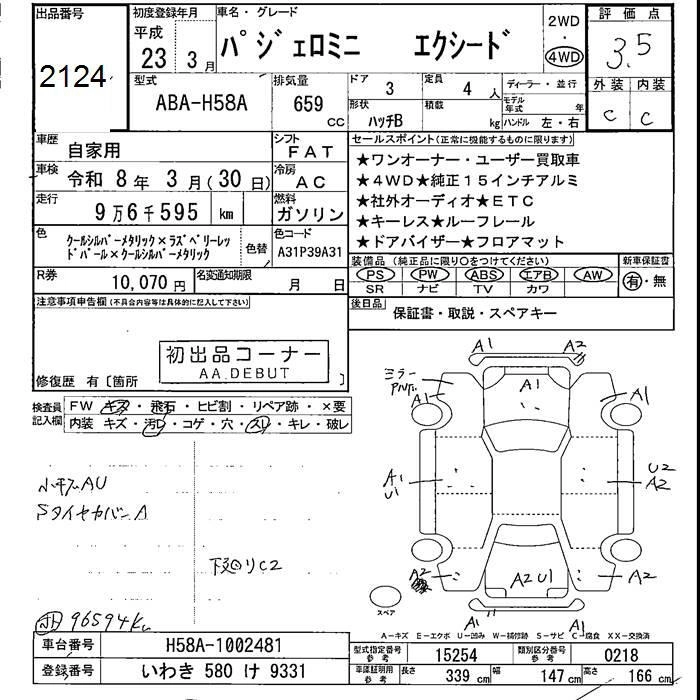 出品番号
2124
初度登録年月
平成
23 3月
車名・グレード
パジェロミニ エクシード
2WD
・
4WD
評価点
3.5
外装 内装
C C
型式
ABA-H58A
排気量
659
CC
ドア
3
定員
4 人
ディーラー・並行
形状
ハッチB
積載
kg
モデル年式 年
ハンドル 左・右
車歴
自家用
シフト
FAT
車検
令和 8年 3月(30日)
冷房
AC
走行
9万6千595 km
燃料
ガソリン
色
クールシルバーメタリック×ラズベリーレッ
ドパール×クールシルバーメタリック
色替
色コード
A31P39A31
R券
10,070円
名変通知期限
月 日
セールスポイント(正常に機能するものに限ります)
★ワンオーナー・ユーザー買取車
★4WD★純正15インチアルミ
★社外オーディオ★ETC
★キーレス★ルーフレール
★ドアバイザー★フロアマット
装備品(純正品に限り○をつけてください)
PS PW ABS エアB AW
SR ナビ TV カワ
新車保証書
有・無
後日品
保証書・取説・スペアキー
注意事項申告欄(不具合内容等は具体的に記入して下さい)
初出品コーナー
AA.DEBUT
修復歴 有〔箇所 〕
検査員
記入欄
FW キズ・飛石・ヒビ割・リペア跡・×要
内装 キズ・汚レ・コゲ・穴・スレ・キレ・破レ
小キズAU
SタイヤカバーA
下廻りC2
96594km
ミラー
A1 A2
A1
A1 A1
A1
U1
U2
A2
A2 A2U1 A2
スペア
A1 A1
A-キズ E-エクボ U-凹み W-補修跡 S-サビ C-腐食 XX-交換済
車台番号
H58A-1002481
登録番号
いわき 580 け 9331
型式指定番号
参考
15254
類別区分番号
参考
0218
車庫証明用
参考
長さ 339cm 幅 147cm 高さ 166cm